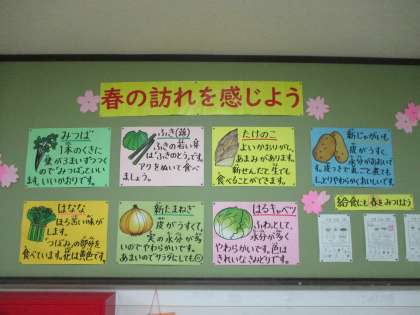 春の訪れを感じよう
みつば
1本のくきに
葉が3まいずつつく
ので「みつば」といい
ます。いいかおりです。
ふき(蕗)
ふきの若い芽
は「ふきのとう」です。
アクをぬいて食べ
ましょう。
たけのこ
よいかおりがし、
あまみがあります。
新せんだと生でも
食べることができます。
新じゃがいも
皮がうすく、
水分がおおいで
す。皮つきで丸ごと煮ても
しっとりやわらかくおいしいです。
はなな
ほろ苦い味が
します。
「つぼみ」の部分を
食べています。花は黄色です。
新たまねぎ
皮がうすくて、
実の水分が多
いのでやわらかいです。
あまいのでサラダにしても
はるキャベツ
ふわっとして、
水分が多く
やわらかいです。色は
きれいなみどりです。
給食にも春をみつけよう